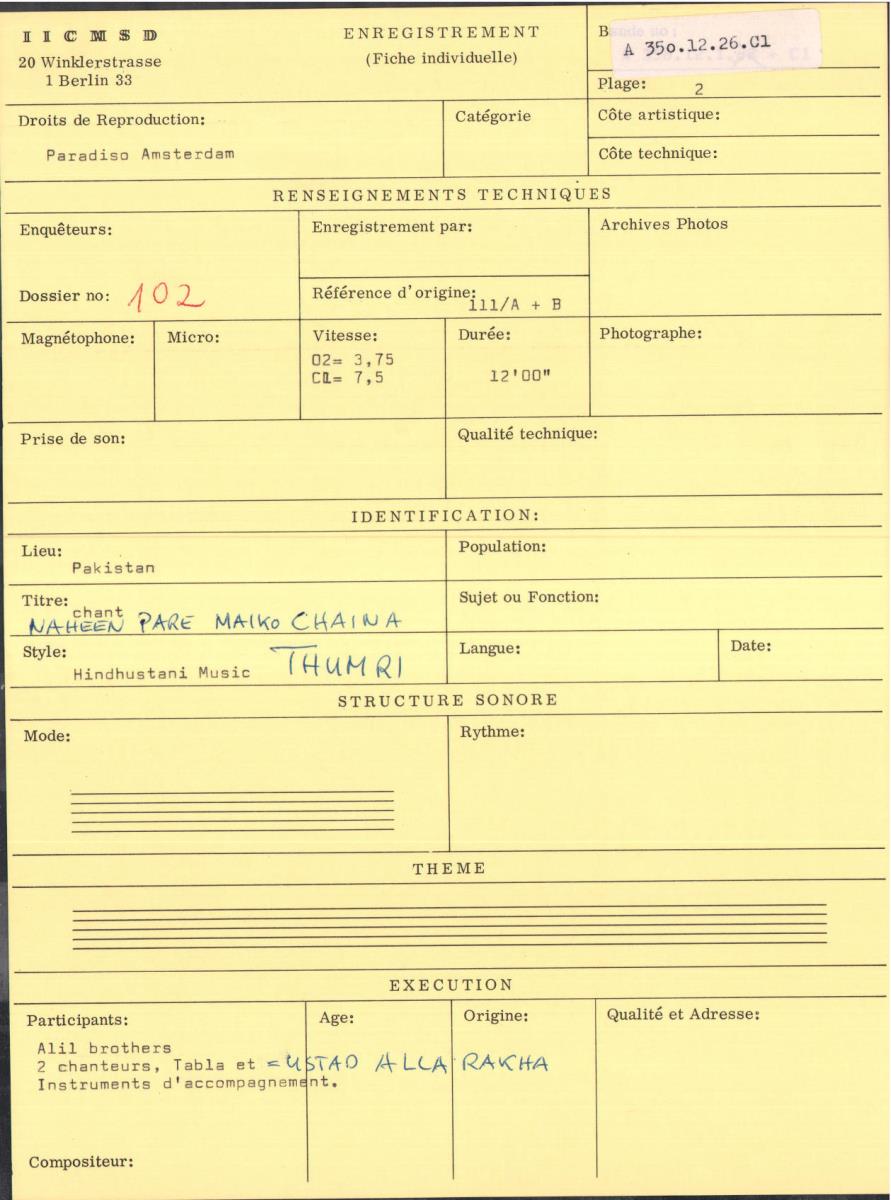 IICMSD
20 Winklerstrasse
1 Berlin 33
ENREGISTREMENT
(Fiche individuelle)
A 350.12.26.C1
Plage: 2
Droits de Reproduction:
Paradiso Amsterdam
Catégorie
Côte artistique:
Côte technique:
RENSEIGNEMENTS TECHNIQUES
Enquêteurs:
Dossier no: 102
Enregistrement par:
Référence d'origine:
111/A + B
Archives Photos
Magnétophone:
Micro:
Vitesse:
O2= 3,75
C1= 7,5
Durée:
12'00"
Photographe:
Prise de son:
Qualité technique:
IDENTIFICATION:
Lieu:
Pakistan
Population:
Titre:
chant
NAHEEN PARE MAIKO CHAINA
Sujet ou Fonction:
Style:
Hindhustani Music THUMRI
Langue:
Date:
STRUCTURE SONORE
Mode:
Rythme:
THEME
EXECUTION
Participants:
Age:
Origine:
Qualité et Adresse:
Alil brothers
2 chanteurs, Tabla et = USTAD ALLA RAKHA
Instruments d'accompagnement.
Compositeur: